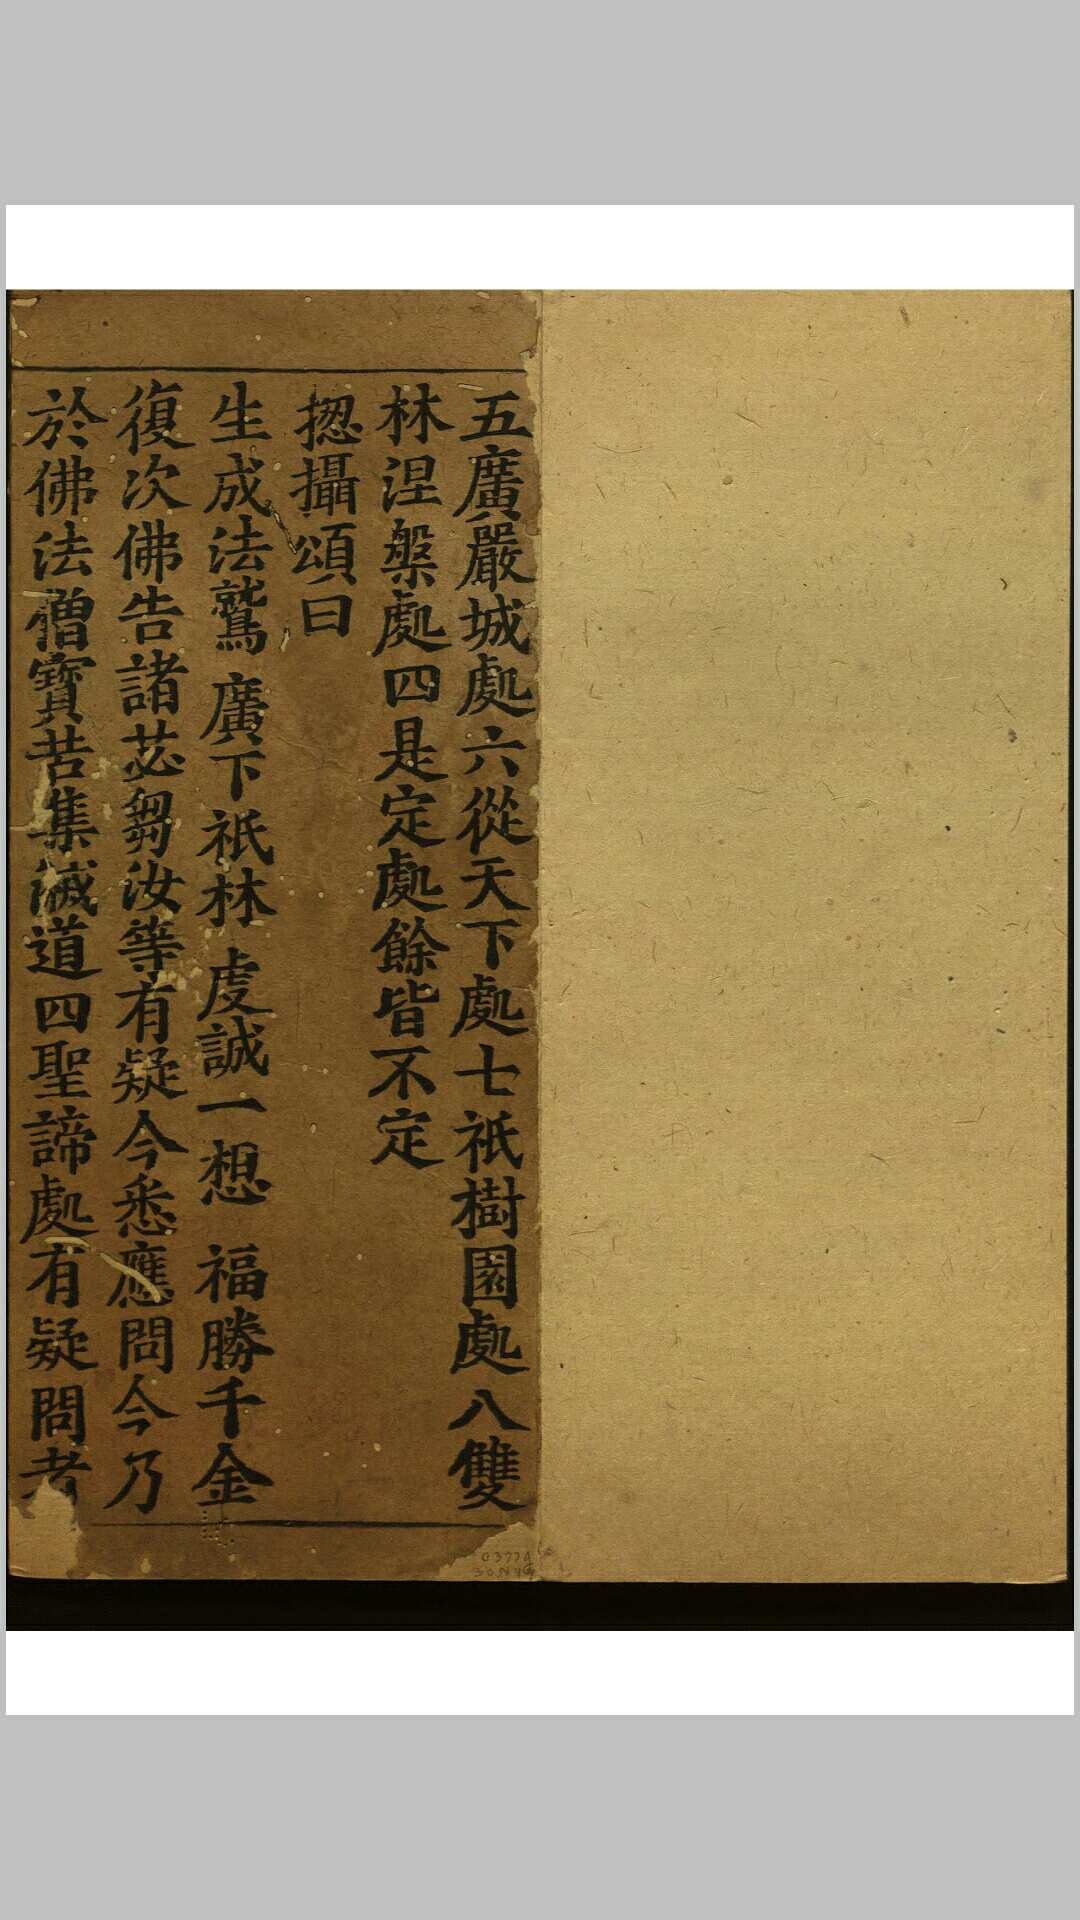 五廣嚴城處六從天下處七祇樹園處八雙
林涅槃處四是定處餘皆不定
揔攝頌曰
生成法鷲 廣下祇林 虔誠一想 福勝千金
復次佛告諸苾芻汝等有疑今悉應問今乃
於佛法僧寶苦集滅道四聖諦處有疑問者